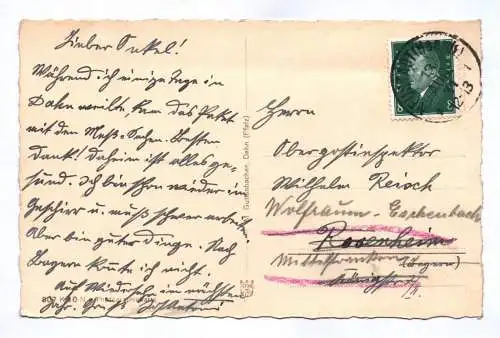 Lieber Onkel!
Während ich einige Tage in
Dahn weilte, kam das Paket
mit den Meß-Sachen. Besten
Dank! Daheim ist alles ge-
sund. Ich bin schon wieder im
Geschirr u. muß schwer arbeiten.
Aber bin guter Dinge. Nach
Bayern konnte ich nicht.
Auf Wiedersehen im nächsten
Jahr. Gruß
Gutenbacher, Dahn (Pfalz)
Herrn
Oberpostinspektor
Wilhelm Reisch
Wolframs-Eschenbach
Rosenheim
Mittelfranken
(Bayern)
12-13